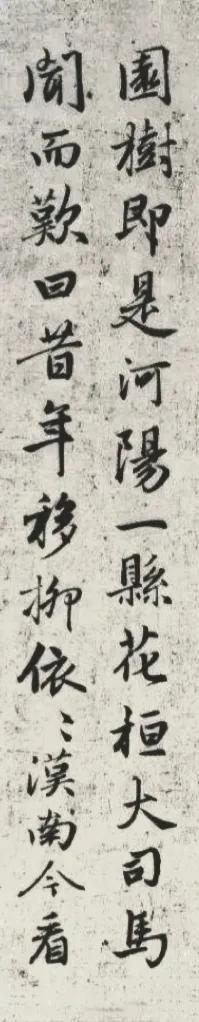 園樹即是河陽一縣花桓大司馬
聞而歎曰昔年移柳依〻漢南今看